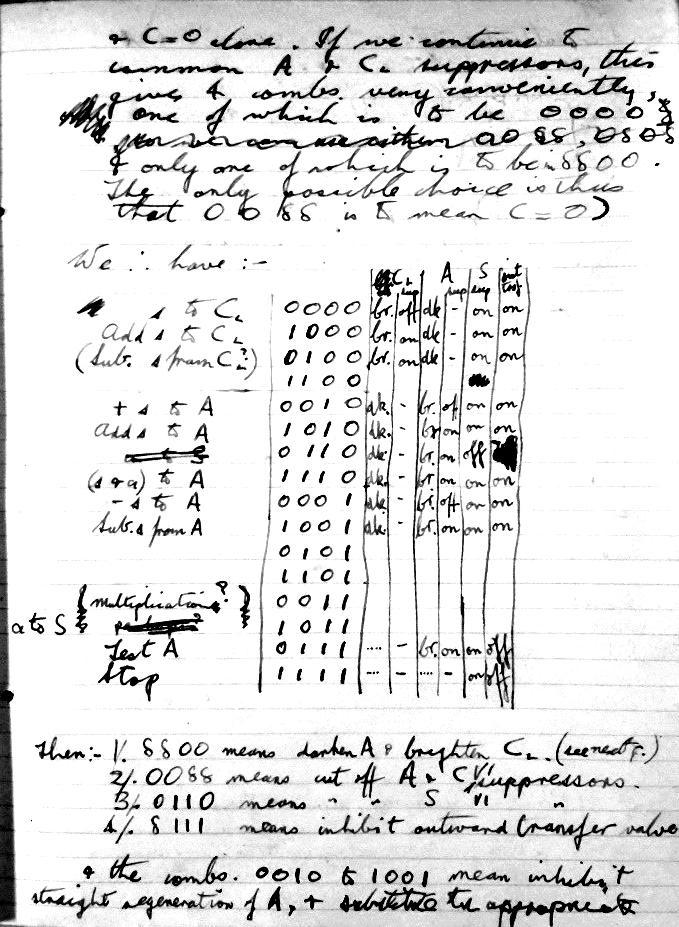 & C=0 alone. If we continue to
common A & CL suppressors, this
gives 4 combs. very conveniently,
one of which is to be 0000
or 0088, 0808
& only one of which is to be 8800.
The only possible choice is thus
that 0088 is to mean C=0)
We ∴ have :-
CL sup A sup S sup
s to CL 0000 br. off dk - on on
Add s to CL 1000 br. on dk - on on
(Sub. s from CL?) 0100 br. on dk - on on
1100
+ s to A 0010 dk. - br. off on on
Add s to A 1010 dk. - br on on on
0110 dk. - br. on off
(s & a) to A 1110 dk. - br. on on on
- s to A 0001 dk - br. off on on
Sub. s from A 1001 dk. - br. on on on
0101
1101
{ multiplication? } 0011
a to S 1011
Test A 0111 .... - br. on on off
Stop 1111 .... - .... - on off
Then:- 1/. 8800 means darken A & brighten CL. (see next p.)
2/. 0088 means cut off A & CL suppressors.
3/. 0110 means " " S " "
4/. 8111 means inhibit outward transfer valve
& the combs. 0010 to 1001 mean inhibit
straight regeneration of A, & substitute the appropriate